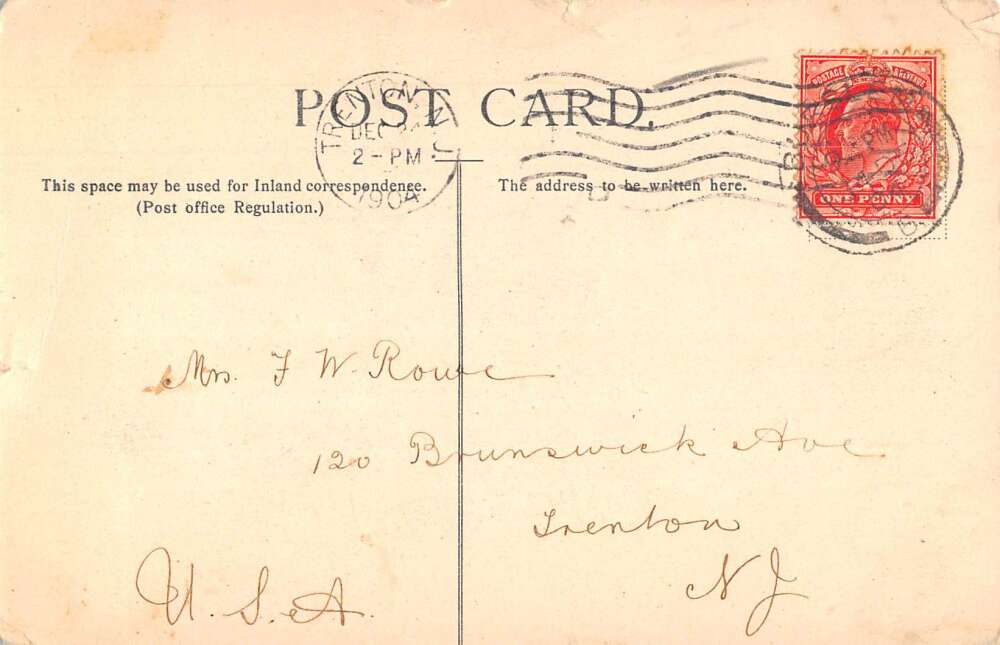 POST CARD.
TRENTON N.J.
DEC
2 - PM
1904
POSTAGE & REVENUE
ONE PENNY
This space may be used for Inland correspondence.
(Post office Regulation.)
The address to be written here.
Mrs. F W. Rowe
120 Brunswick Ave
Trenton
N J
U. S. A.